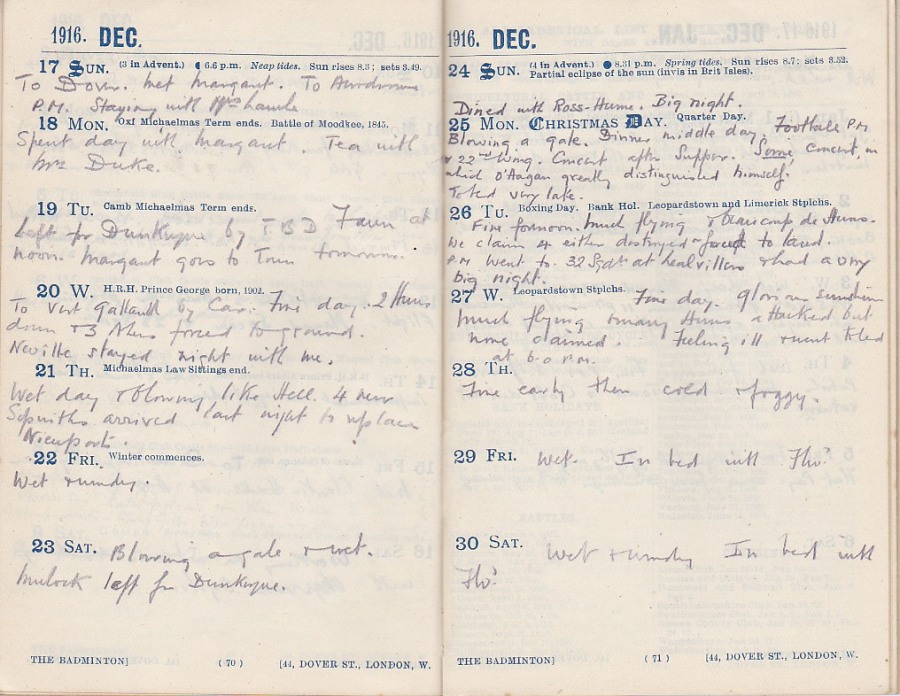 1916. DEC.
17 SUN. (3 in Advent.) 6.6 p.m. Neap tides. Sun rises 8.3; sets 3.49.
To Dover. Met Margaret. To Aerodrome
P.M. Staying with Mrs
18 MON. Oxf Michaelmas Term ends. Battle of Moodkee, 1845.
Spent day with Margaret. Tea with
Mrs Duke.
19 TU. Camb Michaelmas Term ends.
Left for Dunkerque by T B D Fawn at
noon. Margaret goes to Town tomorrow.
20 W. H.R.H. Prince George born, 1902.
To Vert Galland by Car. Fine day. 2 Huns
down & 3 others forced to ground.
Neville stayed night with me.
21 TH. Michaelmas Law Sittings end.
Wet day & blowing like Hell. 4 new
Sopwiths arrived last night to replace
Nieuports.
22 FRI. Winter commences.
Wet & windy.
23 SAT. Blowing a gale & wet.
left for Dunkerque.
THE BADMINTON] (70) [44, DOVER ST., LONDON, W.
1916. DEC.
24 SUN. (4 in Advent.) 8.31 p.m. Spring tides. Sun rises 8.7; sets 3.52.
Partial eclipse of the sun (invis in Brit Isles).
Dined with Ross-Hume. Big night.
25 MON. CHRISTMAS DAY. Quarter Day.
Blowing a gale. Dinner middle day. Football P.M
v 22nd Wing. Concert after Supper. Some concert, in
which O'Hagan greatly distinguished himself.
To bed very late.
26 TU. Boxing Day. Bank Hol. Leopardstown and Limerick Stplchs.
Fine forenoon. Much flying & beaucoup de Huns.
We claim 4 either destroyed or forced to land.
P.M went to 32 Sqdn at Lealvillers & had a very
big night.
27 W. Leopardstown Stplchs. Fine day. Glorious sunshine
Much flying & many Huns attacked but
none claimed. Feeling ill & went to bed
at 6.0 P.M.
28 TH.
Fine early then cold & foggy.
29 FRI. Wet. In bed with Flu.
30 SAT. Wet & windy In bed with
Flu.
THE BADMINTON] (71) [44, DOVER ST., LONDON, W.